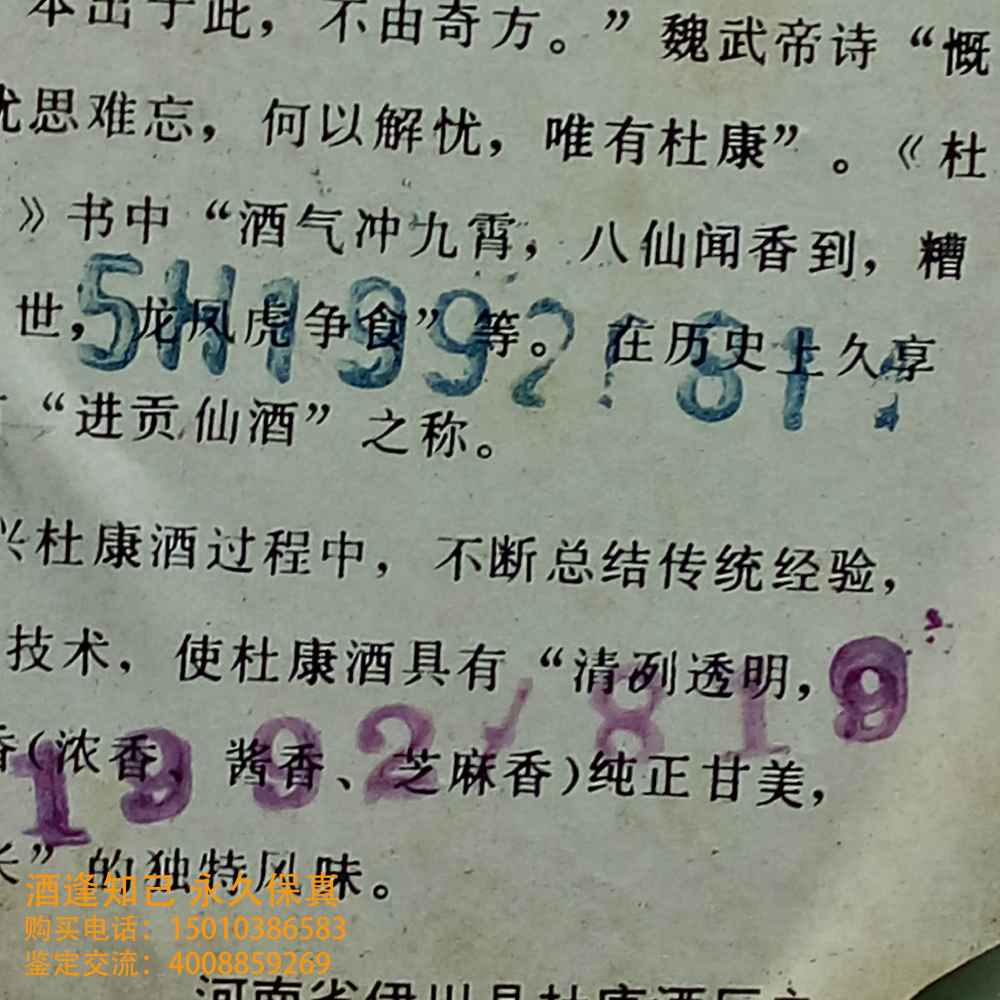 本出于此，不由奇方。”魏武帝诗“慨
忧思难忘，何以解忧，唯有杜康”。《杜
》书中“酒气冲九霄，八仙闻香到，糟
世，龙凤虎争食”等。在历史上久享
5H1992.81
“进贡仙酒”之称。
兴杜康酒过程中，不断总结传统经验，
技术，使杜康酒具有“清列透明，
1992/819
香(浓香、酱香、芝麻香)纯正甘美，
长”的独特风味。
酒逢知己 永久保真
购买电话：15010386583
鉴定交流：4008859269
河南省伊川县杜康酒厂